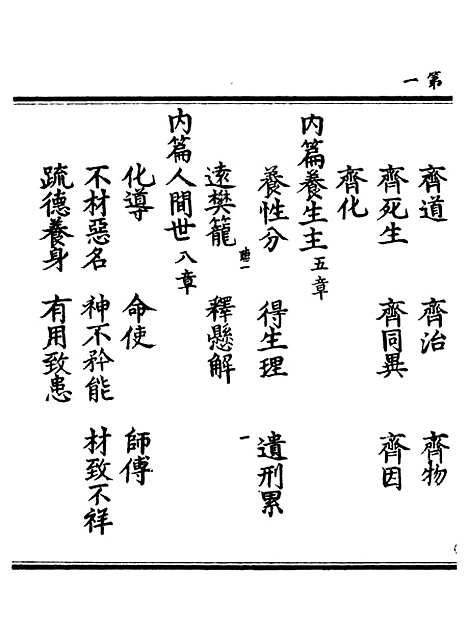 第一
齊道 齊治 齊物
齊死生 齊同異 齊因
齊化
內篇養生主五章
養性分 得生理 遺刑累
遠樊籠 釋懸解
內篇人間世八章
化導 命使 師傅
不材惡名 神不矜能 材致不祥
疏德養身 有用致患